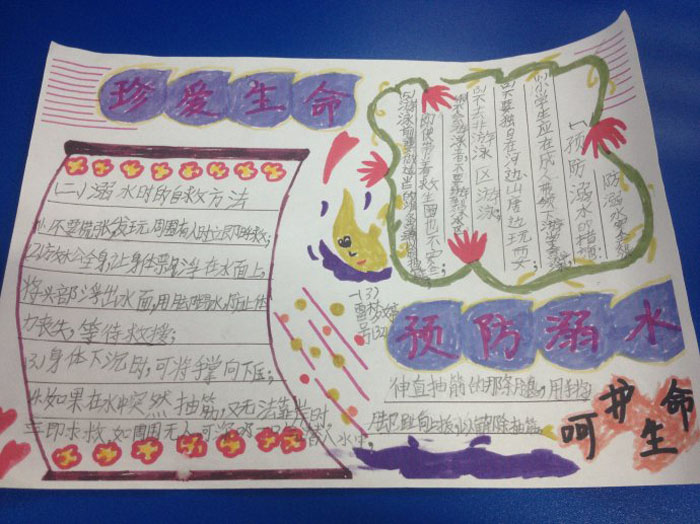 珍爱生命
(二)溺水时的自救方法
(1)不要慌张,发现周围有人时立即呼救;
(2)放松全身,让身体漂浮在水面上,
将头部浮出水面,用脚踢水,防止体
力丧失,等待救援;
(3)身体下沉时,可将手掌向下压;
4.如果在水中突然抽筋,又无法靠岸时,
立即求救,如周围无人,可深吸一口气潜入水中,
伸直抽筋的那条腿,用手将
脚趾向上扳,以解除抽筋。
防溺水
(一)预防溺水的措施
(1)小学生应在成人带领下游泳
(2)不要独自在河边、山塘边玩耍;
(3)不去非游泳区游泳;
即使带着救生圈也不安全;
一(3)
号(32)
预防溺水
呵护生命